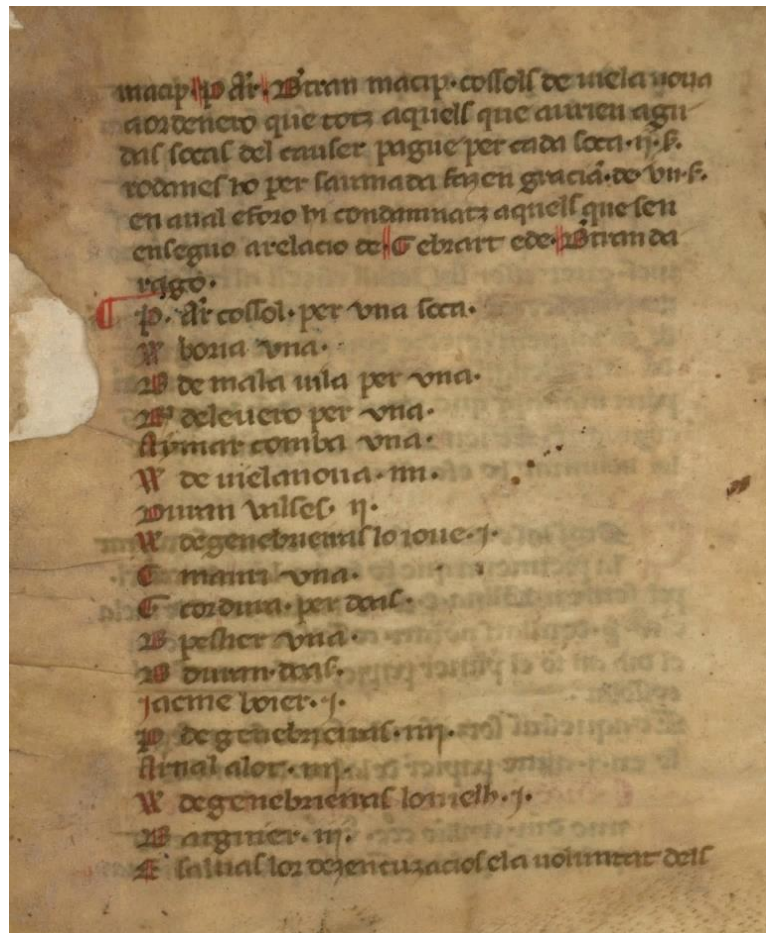 macip. P. Ar. B'tran macip. cossols de uiela noua
aordenero que totz aquels que aurien agu
das socas del causer pague per cada soca. ii. s.
rodanes ho per saumada fazen gracia. de. vn. s.
en aual eforo hi condamnatz aquels que sen
enseguo arelacio de. G ebrart e de. B'tran da
rago.
P. Ar cossol. per vna soca.
W boria vna.
B de mala uila per vna.
per vna.
Aymar comba vna.
W de uielanoua. iiii.
Duran vilses. ii.
W degenebrieiras lo ioue. j.
G manri vna.
G cordura. per doas.
B peschier vna.
B duran. doas.
Jacme boier. j.
P degenebrieiras. iiii.
Arnal alor. iiii.
W degenebrieiras lo uielh. j.
B arguier. iii.
E saluas lor dezencuzacios e la uoluntat dels